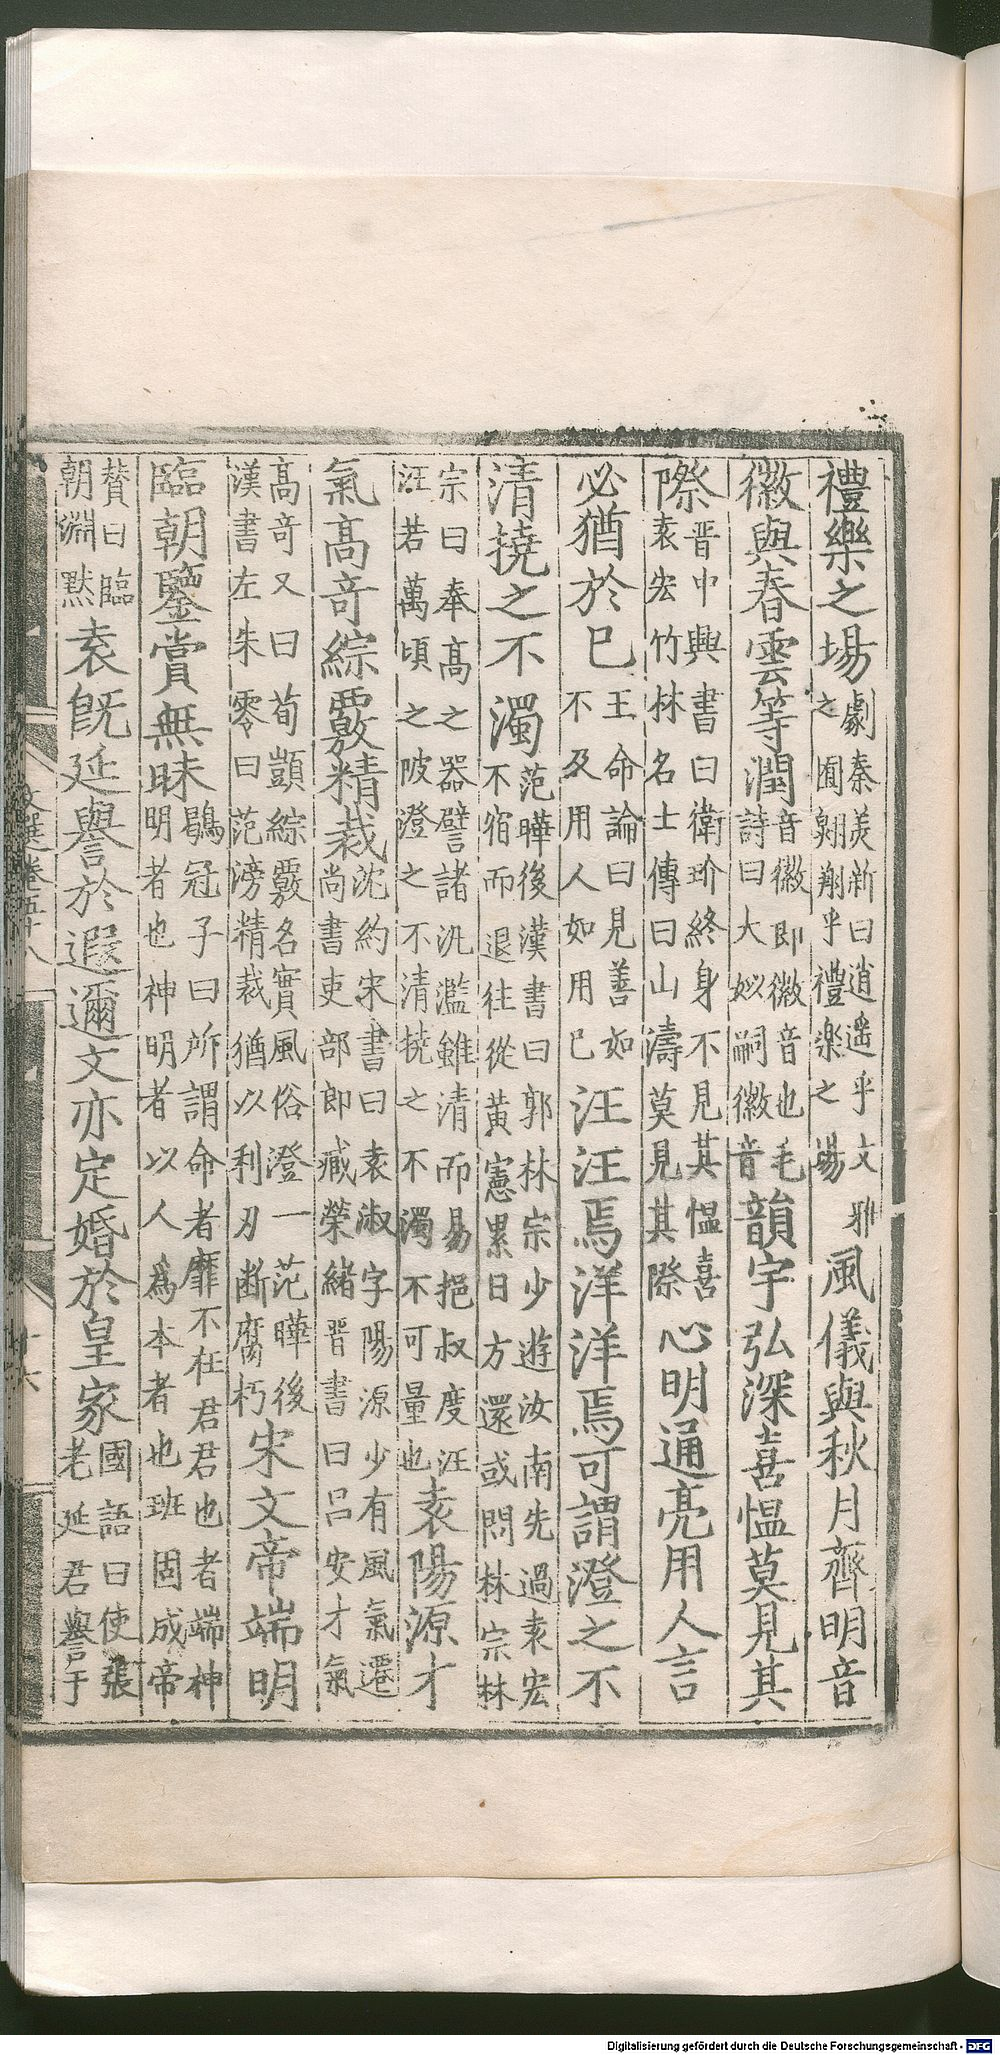 禮樂之場劇秦美新曰逍遥乎文雅之囿翺翔乎禮樂之場風儀與秋月齊明音
徽與春雲等潤音徽即徽音也毛詩曰大姒嗣徽音韻宇弘深喜慍莫見其
際晉中興書曰衛玠終身不見其慍喜袁宏竹林名士傳曰山濤莫見其際心明通亮用人言
必猶於已王命論曰見善如不及用人如用已汪汪焉洋洋焉可謂澄之不
清撓之不濁范曄後漢書曰郭林宗少遊汝南先過袁宏不宿而退往從黃憲累日方還或問林宗林
宗曰奉高之器譬諸汎濫雖清而易挹叔度汪汪若萬頃之陂澄之不清撓之不濁不可量也袁陽源才
氣高竒綜覈精裁沈約宋書曰袁淑字陽源少有風氣遷尚書吏部郎臧榮緒晉書曰呂安才氣
高竒又曰荀顗綜覈名實風俗澄一范曄後漢書左朱零曰范滂精裁猶以利刃斷腐朽宋文帝端明
臨朝鑒賞無昧鶡冠子曰所謂命者靡不在君君也者端神明者也神明者以人爲本者也班固成帝
賛曰臨朝淵黙袁旣延譽於遐邇文亦定婚於皇家國語曰使張老延君譽于
文選卷五十八
十六
Digitalisierung gefördert durch die Deutsche Forschungsgemeinschaft - DFG